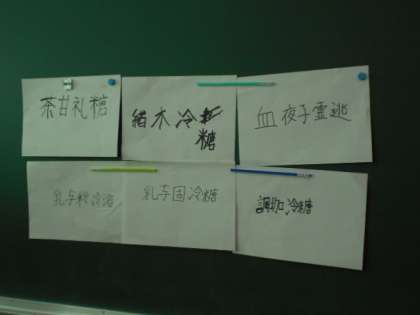 茶甘礼糖
緒木冷糖
血夜子霊逃
乳予軟冷溶
乳予固冷糖
調加冷糖